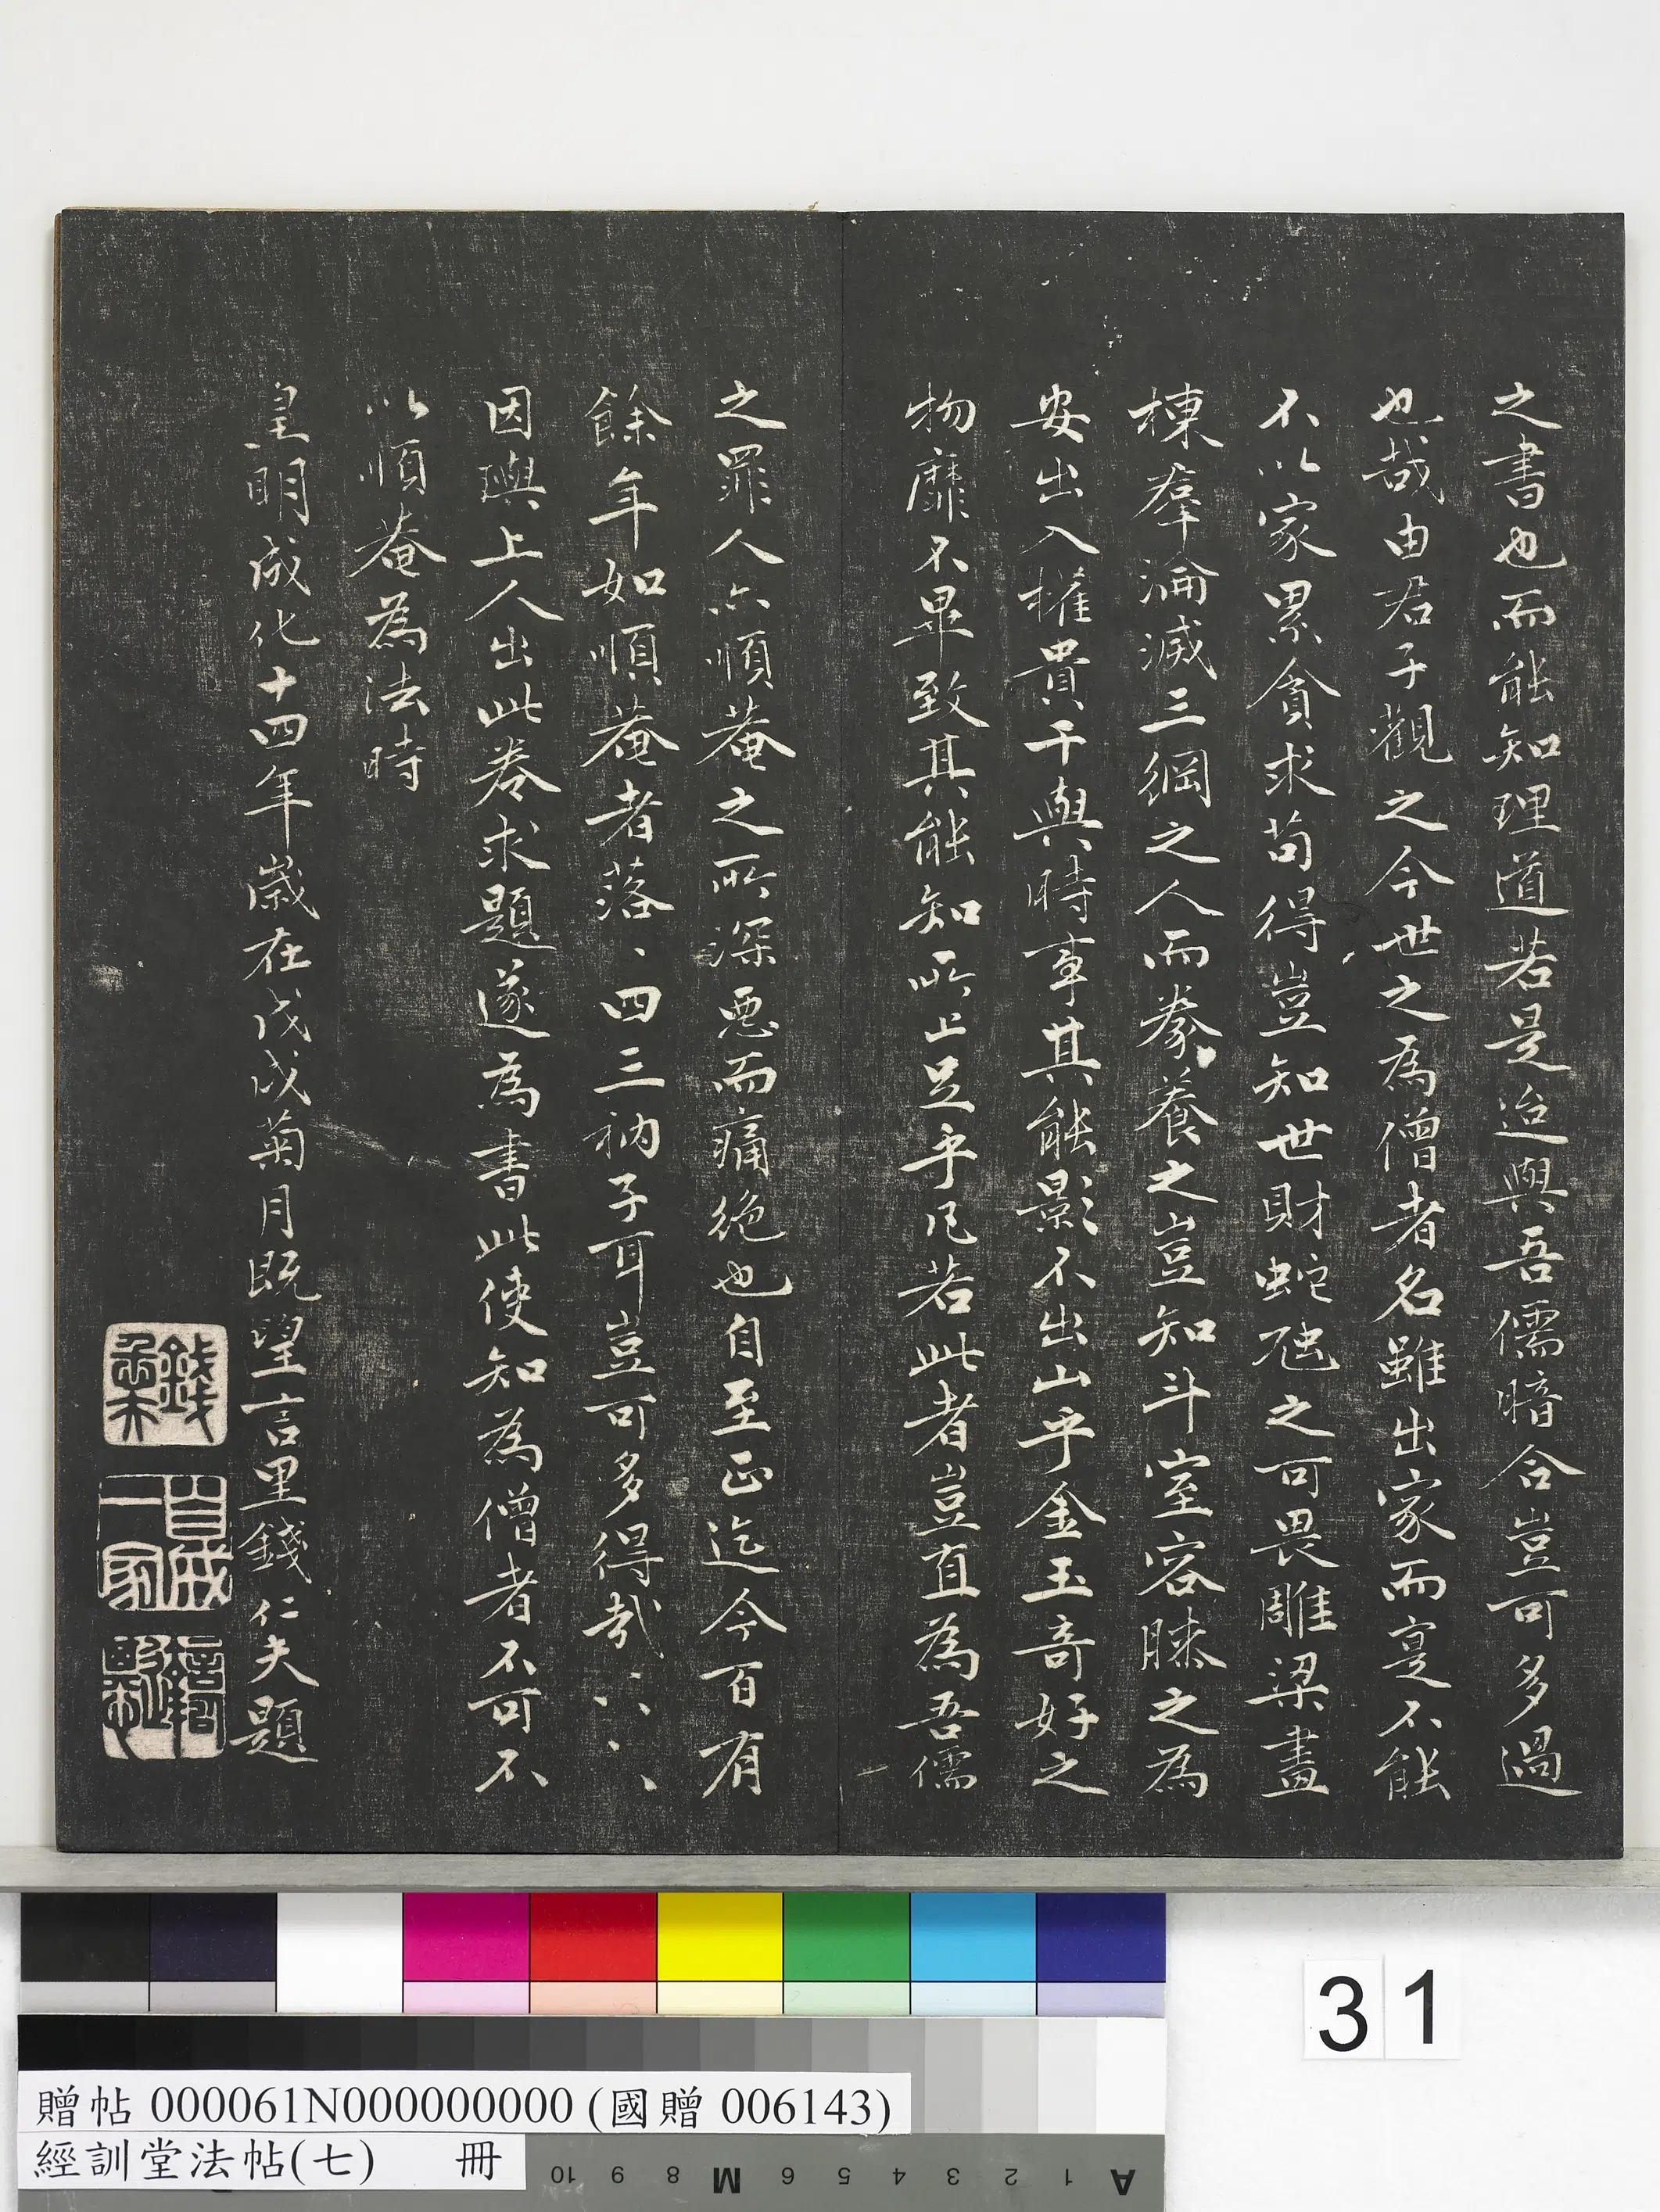 之書也而能知理道若是迨與吾儒暗合豈可多過
也哉由君子觀之今世之為僧者名雖出家而寔不能
不以家累貪求苟得豈知世財蛇虺之可畏雕梁畫
棟羣淪滅三綱之人而豢養之豈知斗室容膝之為
安出入權貴干與時事其能影不出山乎金玉奇好之
物靡不畢致其能知所止足乎凡若此者豈直為吾儒
之罪人亦順菴之所深惡而痛絕也自至正迄今百有
餘年如順菴者落、四三衲子耳豈可多得哉
因璵上人出此卷求題遂為書此使知為僧者不可不
以順菴為法時
皇明成化十四年歲在戊戌菊月既望言里錢仁夫題
錢
自成一家
31
贈帖 000061N000000000000 (國贈 006143)
經訓堂法帖(七) 冊
10 9 8 M 6 5 4 3 2 1 A